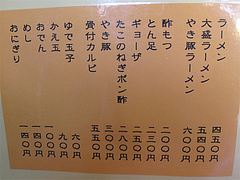 ラーメン 四五〇円
大盛ラーメン 五四〇円
やき豚ラーメン 六〇〇円
酢もつ 二〇〇円
とん足 二三〇円
ギョーザ 二五〇円
たこのねぎポン酢 二八〇円
やき豚
骨付カルビ 五五〇円
ゆで玉子 六〇円
かえ玉 九〇円
おでん
めし
おにぎり 一四〇円